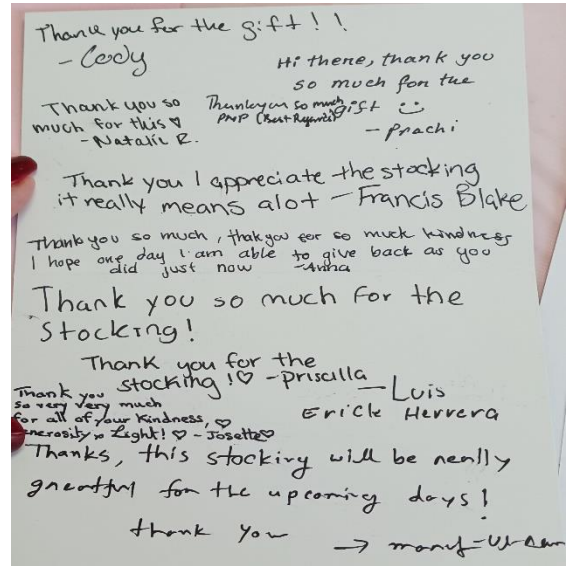 Thank you for the gift!!
- Cody
Hi there, thank you
so much for the
gift :)
- Prachi
Thank you so
much for this ♡
- Natalie R.
Thank you so much
PNP (Best Regards)
Thank you I appreciate the stocking
it really means alot - Francis Blake
Thank you so much, thak you for so much kindness
I hope one day I am able to give back as you
did just now - Anna
Thank you so much for the
Stocking!
- Luis
Erick Herrera
Thank you for the
stocking!♡ - Priscilla
Thank you
so very very much
for all of your kindness, ♡
nerosity & Light! ♡ - Josette♡
Thanks, this stocking will be really
greatful for the upcoming days!
thank you
→